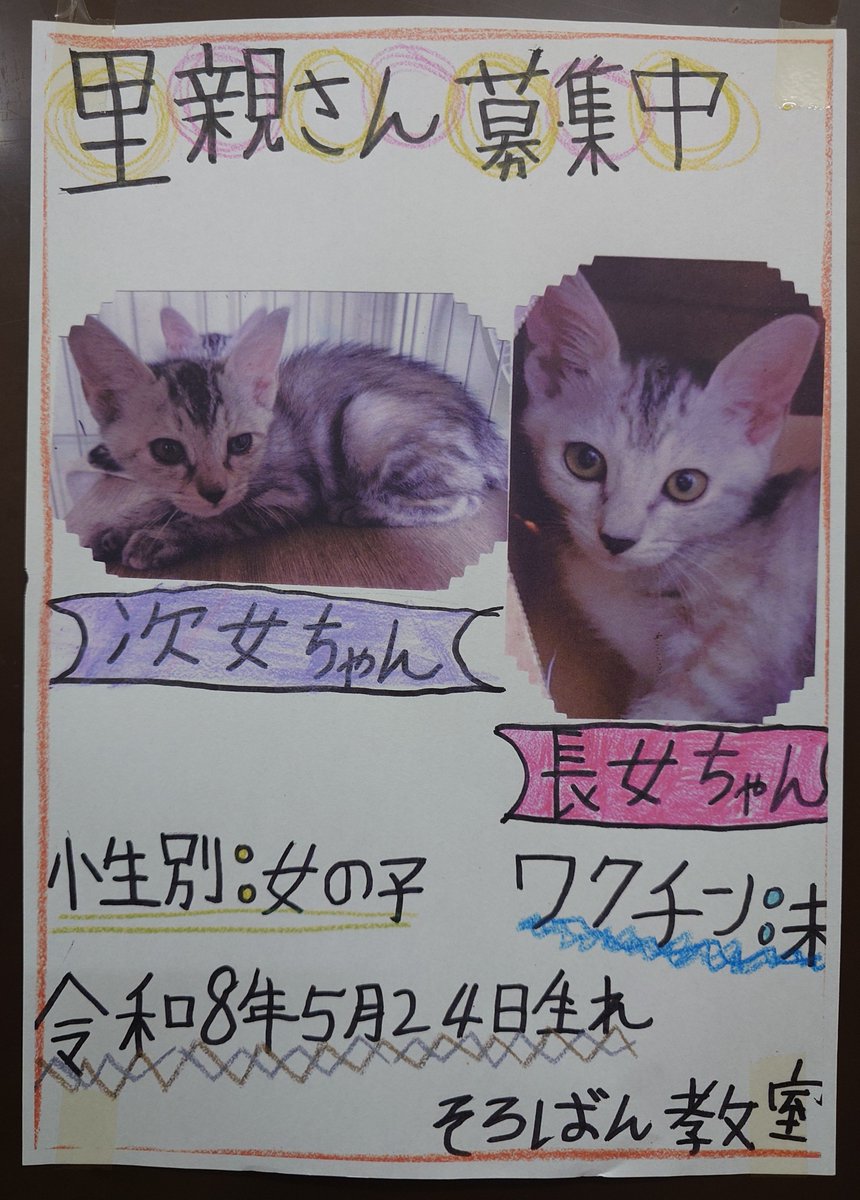 里親さん募集中
次女ちゃん
長女ちゃん
性別:女の子
ワクチン:未
令和8年5月24日生れ
そろばん教室